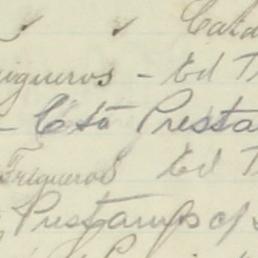 Cata
Trigueros - Ed T
- Cta Presta
Trigueros Ed T
Prestamos c/